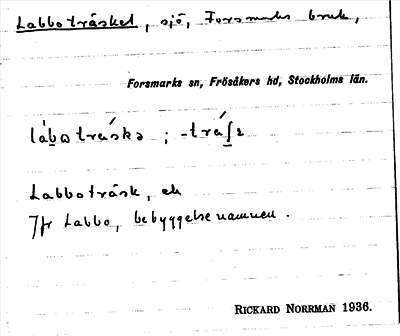 Labboträsket, sjö, Forsmarks bruk,
Forsmarks sn, Frösåkers hd, Stockholms län.
Labboträsk, ek
Jfr Labbo, bebyggelsenamnen.
RICKARD NORRMAN 1936.